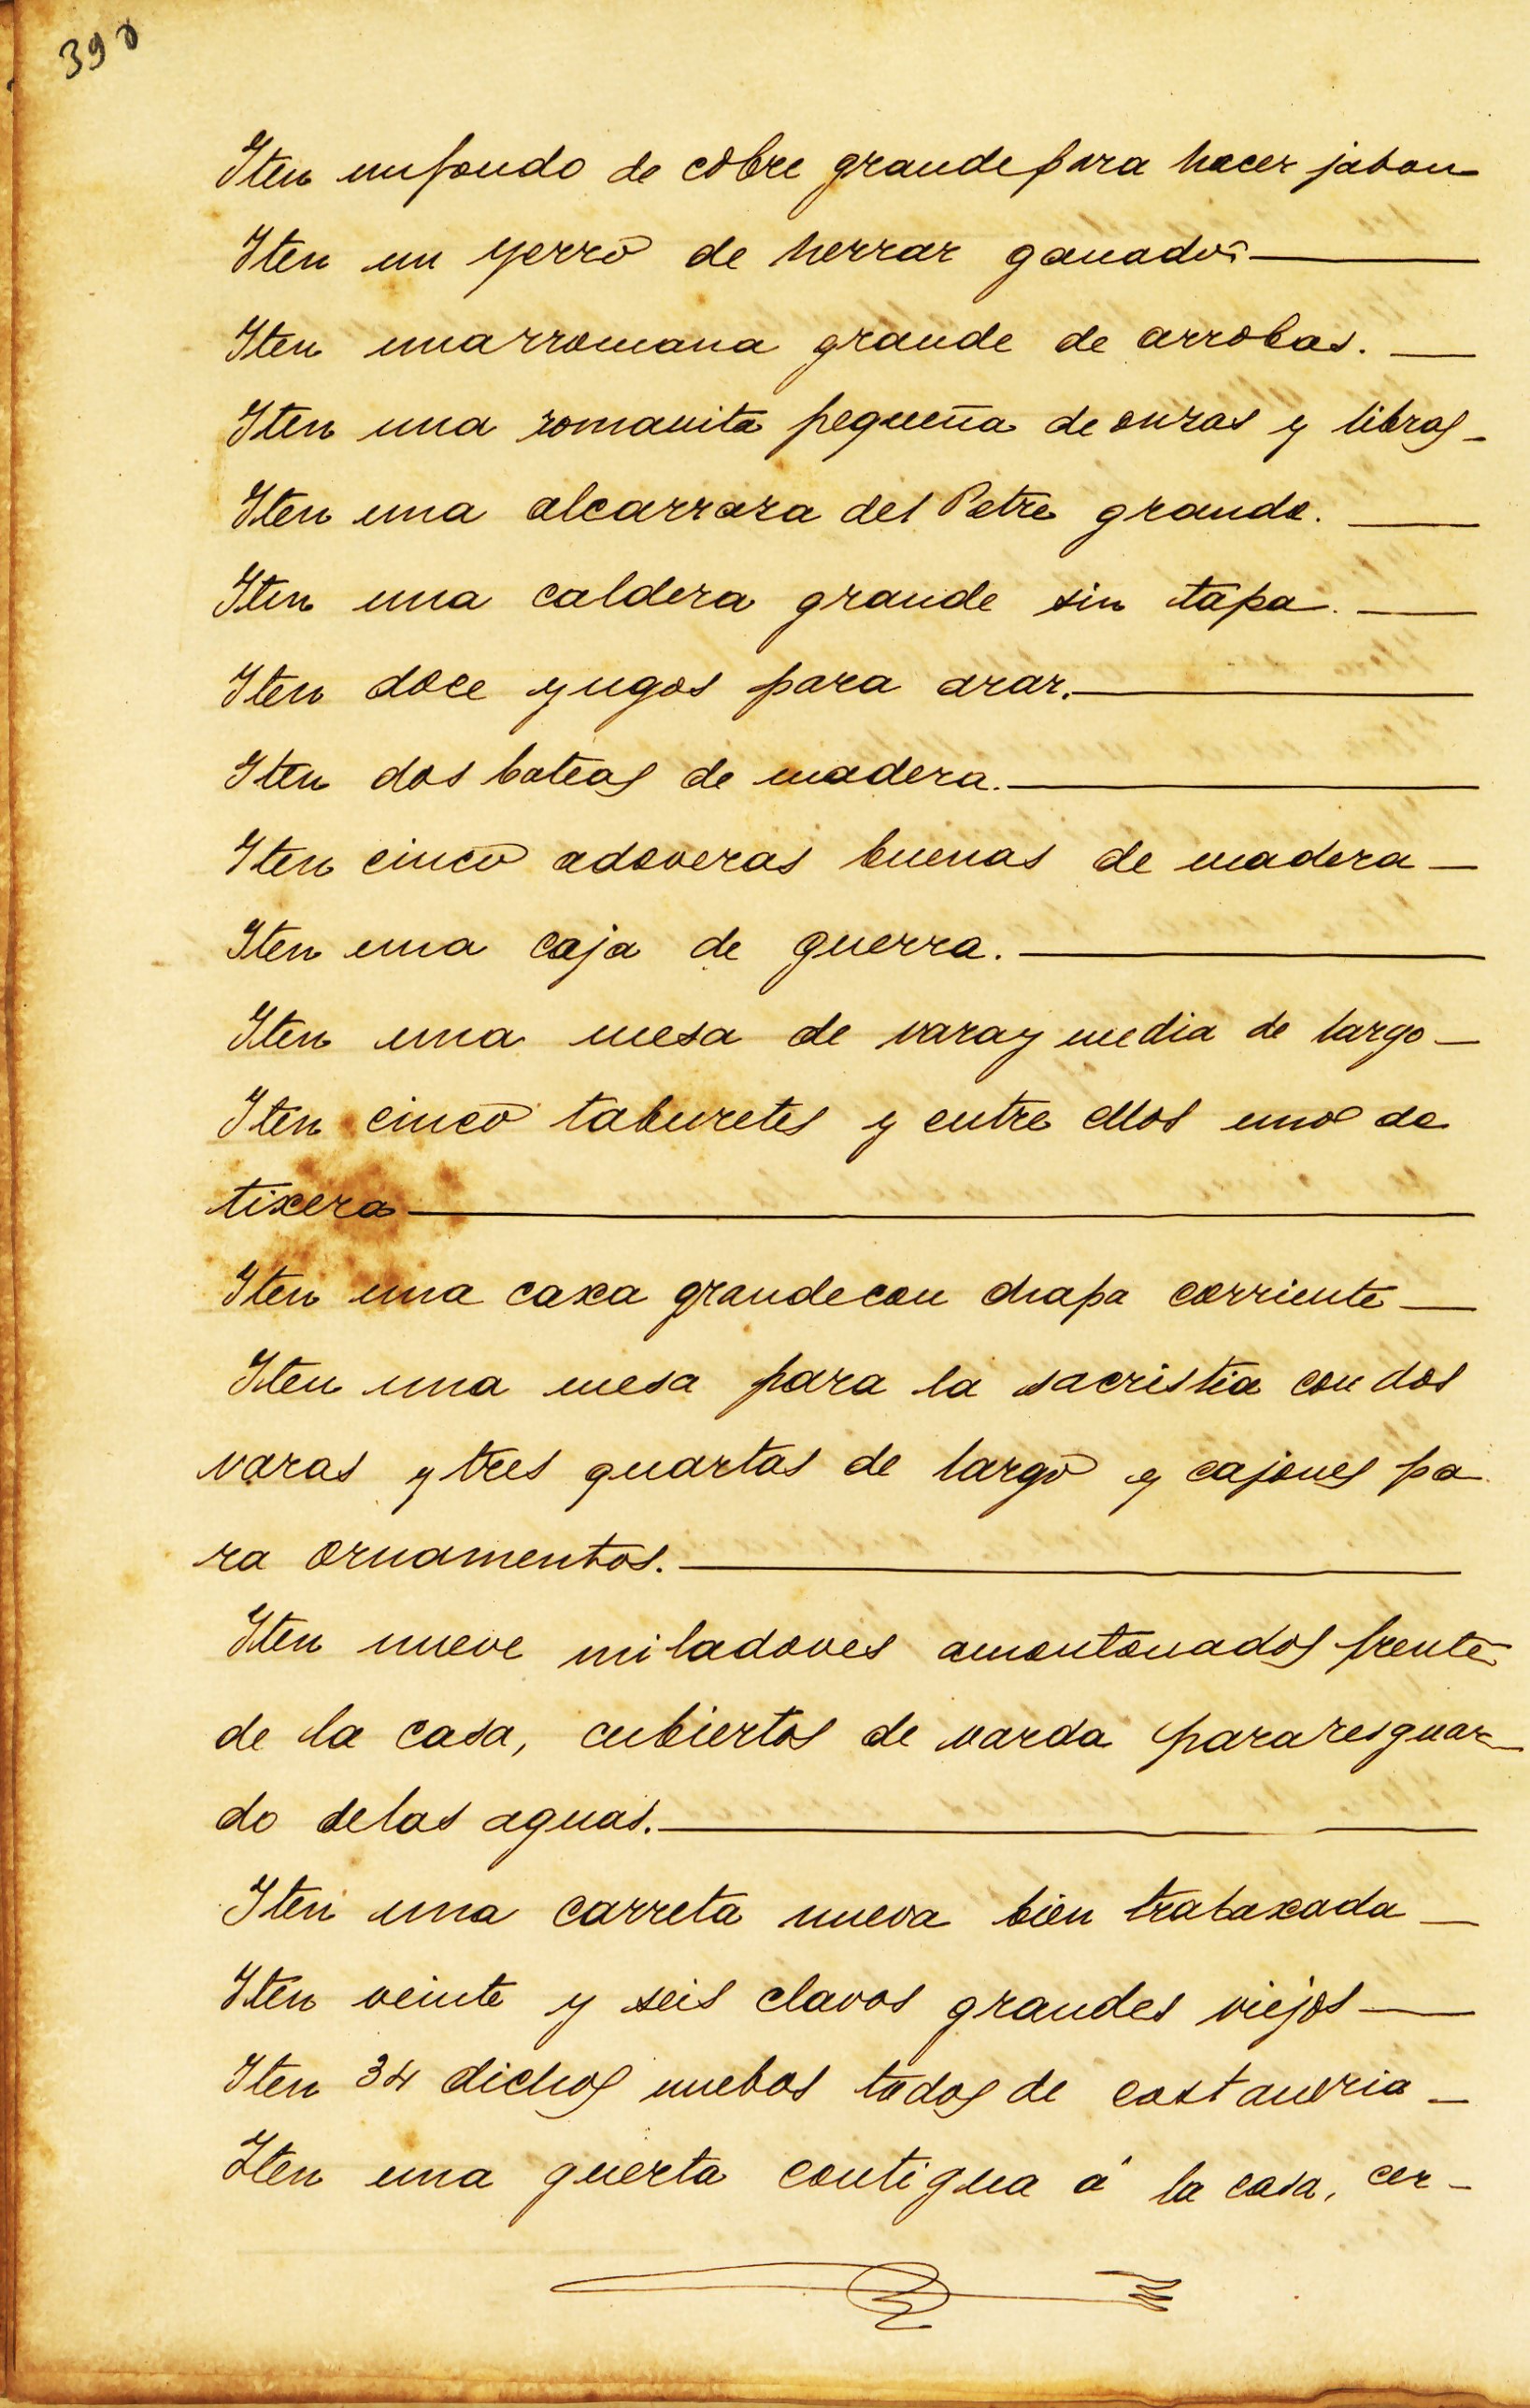 390
Iten unfondo de cobre grande para hacer jabon
Iten un yerro de herrar ganados
Iten unarromana grande de arrobas.
Iten una romanita pequeña de onzas y libras
Iten una alcarraza del Petre grande.
Iten una caldera grande sin tapa.
Iten doce yugos para arar.
Iten dos bateas de madera.
Iten cinco adoveras buenas de madera
Iten una caja de guerra.
Iten una mesa de varay media de largo
Iten cinco taburetes y entre ellos uno de
tixera
Iten una caxa grandecon chapa corriente
Iten una mesa para la sacristia con dos
varas y tres quartas de largo y cajones pa
ra ornamentos.
Iten nueve miladoves amontonados frente
de la casa, cubiertos de varda pararesguar
do delas aguas.
Iten una carreta nueva bien trabaxada
Iten veinte y seis clavos grandes viejos
Iten 34 dichos nuebos todos de
Iten una guerta contigua á la casa, cer-